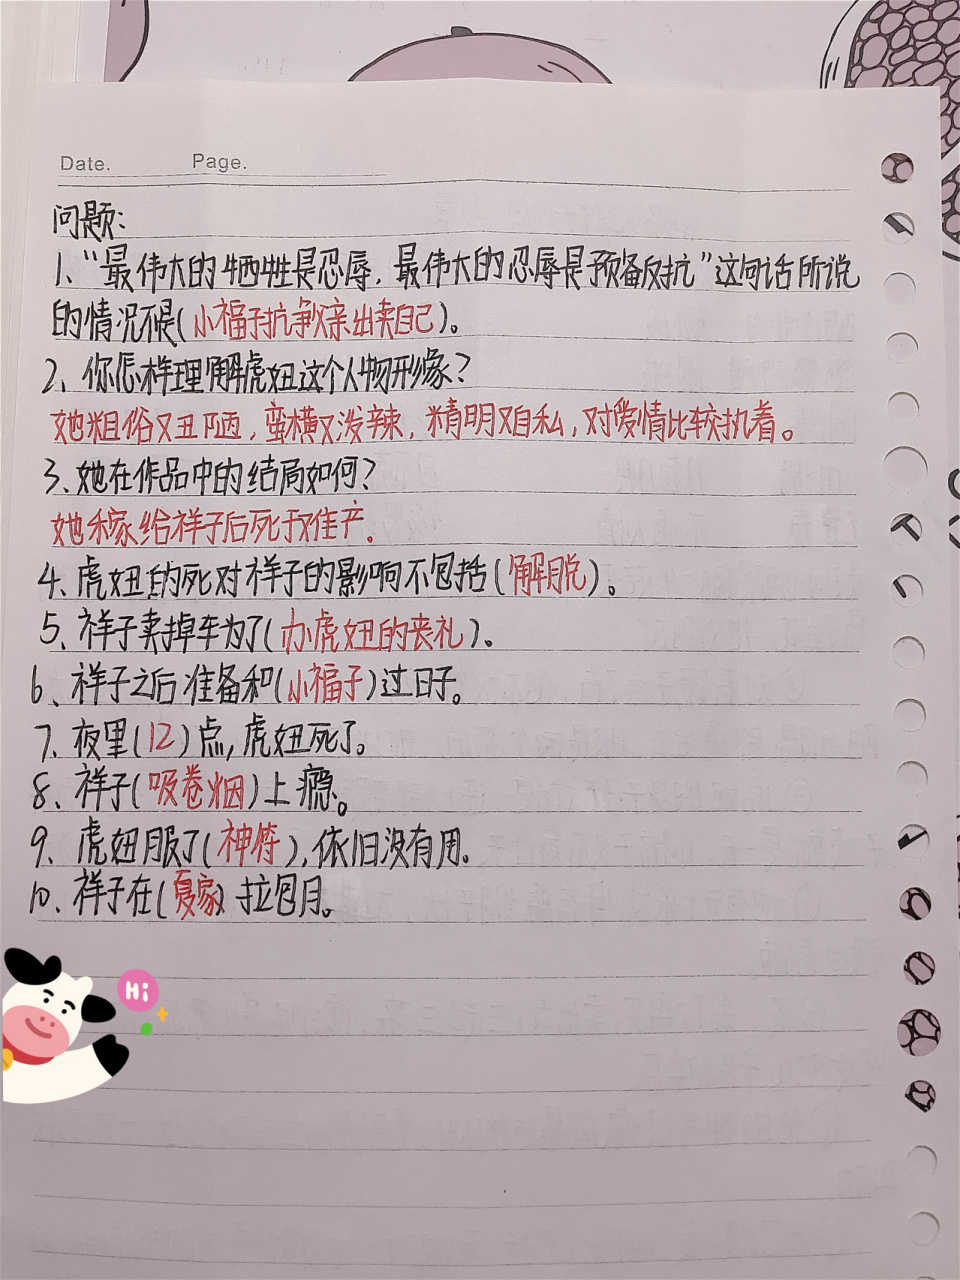 Date. Page.
问题:
1、“最伟大的牺牲是忍辱,最伟大的忍辱是预备反抗”这句话所说
的情况不是(小福子抗争父亲出卖自己)。
2、你怎样理解虎妞这个人物形象?
她粗俗又丑陋,蛮横又泼辣,精明又自私,对爱情比较执着。
3、她在作品中的结局如何?
她嫁给祥子后死于难产。
4、虎妞的死对祥子的影响不包括(解脱)。
5、祥子卖掉车为了(办虎妞的丧礼)。
6、祥子之后准备和(小福子)过日子。
7、夜里(12)点,虎妞死了。
8、祥子(吸卷烟)上瘾。
9、虎妞服了(神符),依旧没有用。
10、祥子在(夏家)拉包月。
Hi